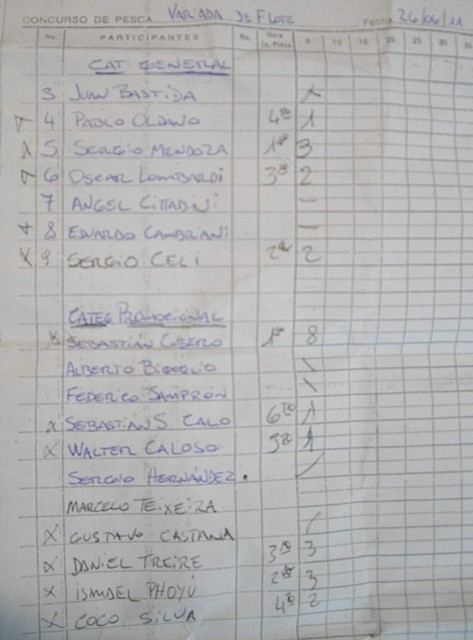 CONCURSO DE PESCA VARIADA DE FLOTE Fecha 26/06/11
No. PARTICIPANTES No. Hora 1a. Pieza 5 10 15 20 25 30
CAT. GENERAL
3 JUAN BASTIDA
4 PABLO OLDANO 4to 1
x 5 SERGIO MENDOZA 1º 3
6 OSCAR LOMBARDI 3º 2
7 ANGEL CITTADINI —
x 8 EDUARDO CAMBRIANI —
x 9 SERGIO CELI 2do 2
CATEG PROMOCIONAL
x SEBASTIÁN CUBERO 1º 8
ALBERTO \
FEDERICO SAMPRÓN \
x SEBASTIÁN S CALO 6to 1
x WALTER CALOSO 5to 1
SERGIO HERNÁNDEZ. /
MARCELO TEIXEIRA
x GUSTAVO CASTANA /
x DANIEL TREIRE 3º 3
x ISMAEL PHOYÚ 2do 3
x COCO SILVA 4to 2